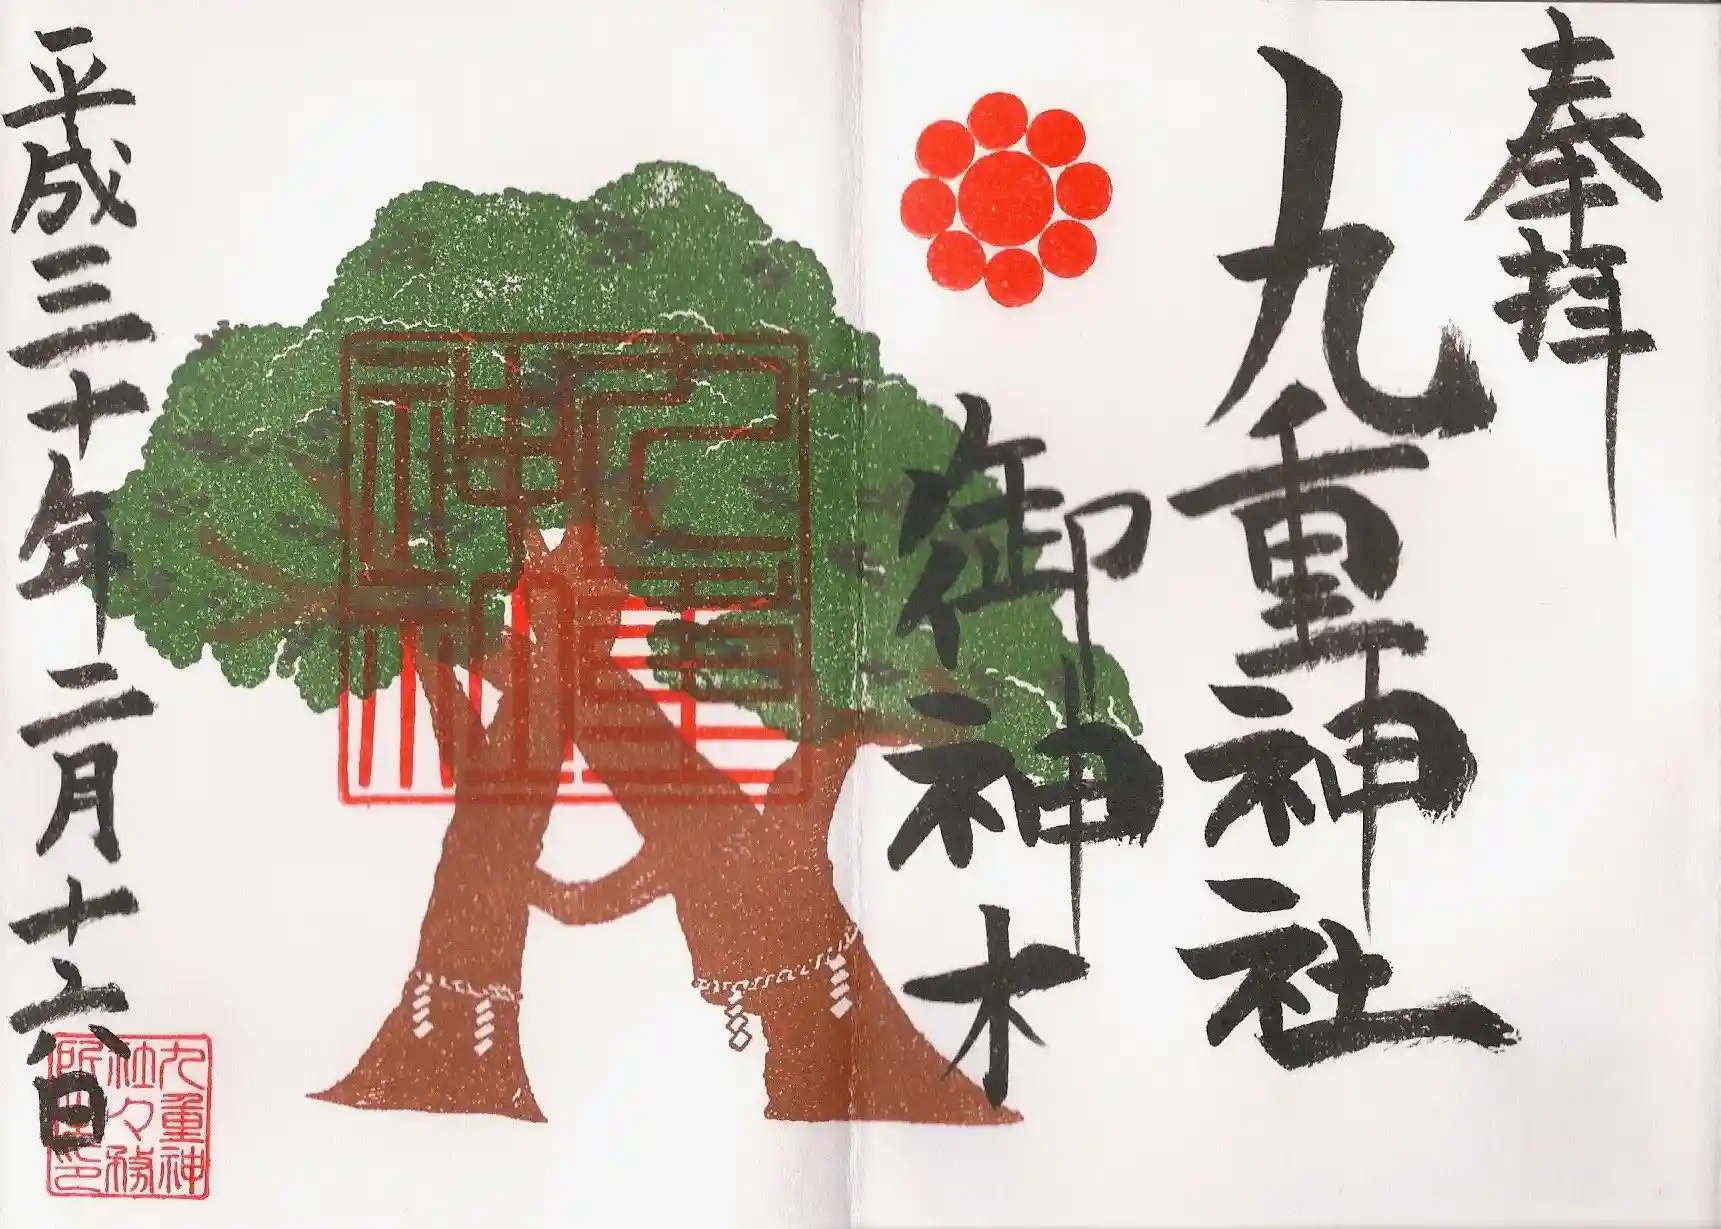 奉拝
九重神社
御神木
平成三十年二月十六日
九重神社
九重神
社々務
所之印